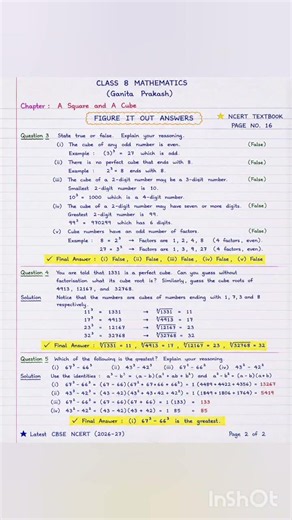 CLASS 8 MATHEMATICS
(Ganita Prakash)
Chapter : A Square and A Cube
FIGURE IT OUT ANSWERS
★ NCERT TEXTBOOK
PAGE NO. 16
Question 3 State true or false. Explain your reasoning.
(i) The cube of any odd number is even. (False)
Example : (3)³ = 27 which is odd.
(ii) There is no perfect cube that ends with 8. (False)
Example : 2³ = 8 ends with 8.
(iii) The cube of a 2-digit number may be a 3-digit number. (False)
Smallest 2-digit number is 10.
10³ = 1000 which is a 4-digit number.
(iv) The cube of a 2-digit number may have seven or more digits. (False)
Greatest 2-digit number is 99.
99³ = 970299 which has 6 digits.
(v) Cube numbers have an odd number of factors. (False)
Example : 8 = 2³ → Factors are 1, 2, 4, 8 (4 factors, even).
27 = 3³ → Factors are 1, 3, 9, 27 (4 factors, even).
✓ Final Answer : (i) False, (ii) False, (iii) False, (iv) False, (v) False
Question 4 You are told that 1331 is a perfect cube. Can you guess without
factorisation what its cube root is? Similarly, guess the cube roots of
4913, 12167, and 32768.
Solution Notice that the numbers are cubes of numbers ending with 1, 7, 3 and 8
respectively.
11³ = 1331 → ∛1331 = 11
17³ = 4913 → ∛4913 = 17
23³ = 12167 → ∛12167 = 23
32³ = 32768 → ∛32768 = 32
✓ Final Answer : ∛1331 = 11, ∛4913 = 17, ∛12167 = 23, ∛32768 = 32
Question 5 Which of the following is the greatest? Explain your reasoning
(i) 67³ − 66³ (ii) 43³ − 42³ (iii) 67² − 66² (iv) 43² − 42²
Solution Use the identities : a³ − b³ = (a − b)(a² + ab + b²) and a² − b² = (a − b)(a + b)
(i) 67³ − 66³ = (67 − 66)(67² + 67×66 + 66²) = 1 (4489 + 4422 + 4356) = 13267
(ii) 43³ − 42³ = (43 − 42)(43² + 43×42 + 42²) = 1 (1849 + 1806 + 1764) = 5419
(iii) 67² − 66² = (67 − 66)(67 + 66) = 1 (133) = 133
(iv) 43² − 42² = (43 − 42)(43 + 42) = 1 85 = 85
✓ Final Answer : (i) 67³ − 66³ is the greatest.
★ Latest CBSE NCERT (2026-27)
Page 2 of 2
InShOt